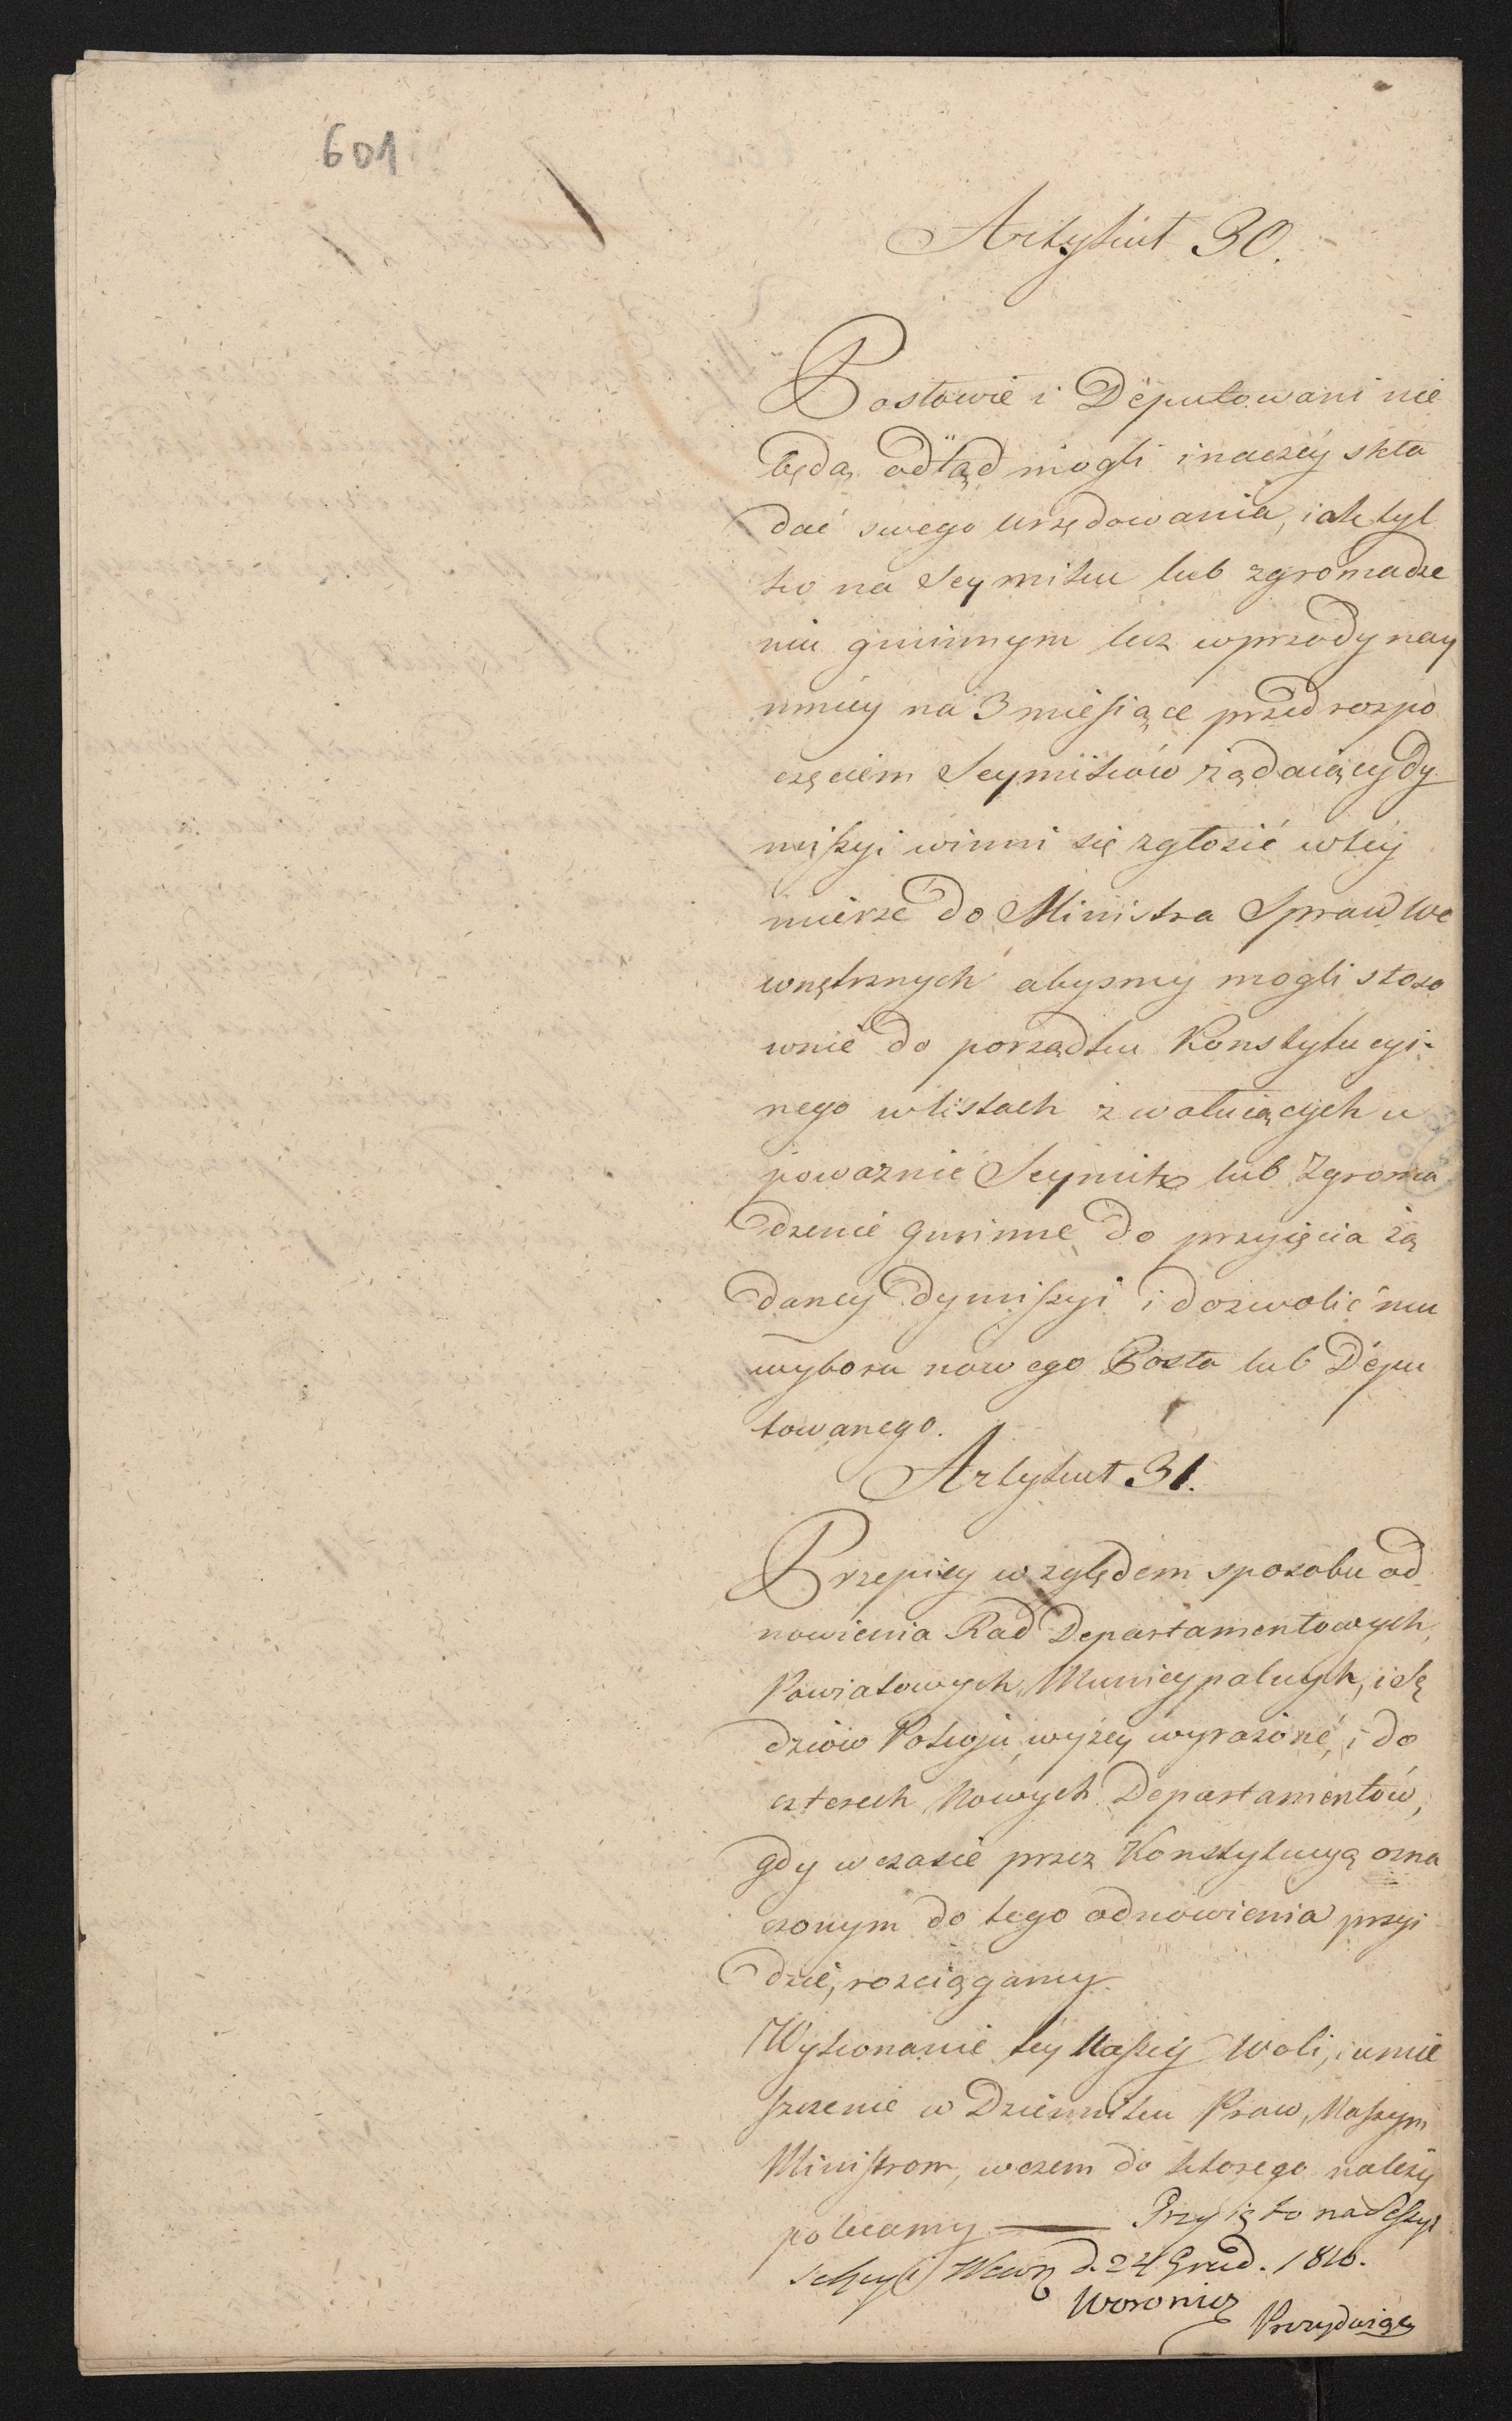 601
Artykuł 30.
Posłowie i Deputowani nie
będą odtąd mogli inaczéy skła
dać swego urzędowania, iak tyl
ko na Seymiku lub zgromadze
niu gminnym lecz wprzody nay
mniéy na 3 miesiące przed rozpo
częciem Seymików żądaiący dy
missyi winni się zgłosić w téy
mierze do Ministra Spraw We
wnętrznych abysmy mogli stoso
wnie do porządku Konstytucyi-
nego w listach zwołuiących u
poważnić Seymik lub Zgroma
dzenie gminne do przyięcia żą
daney dymissyi i dozwolić mu
wyboru nowego Posła lub Depu
towanego.
Artykuł 31.
Przepisy względem sposobu od
nowienia Rad Departamentowych,
Powiatowych, Municypalnych, i Sę
dziów Pokoju wyżey wyrażoné, i do
czterech Nowych Departamentów,
gdy w czasie przez Konstytucyą ozna
czonym do tego odnowienia przyi
dzie, rosciągamy.
Wykonanie téy Naszéy Woli, i umie
szczenie w Dzienniku Praw, Naszym
Ministrom, w czem do którego należy
polecamy. — Przyięto na Sessyi
Sekcyi Wewn d. 24 Grud. 1810.
Woronicz
Prezyduiący